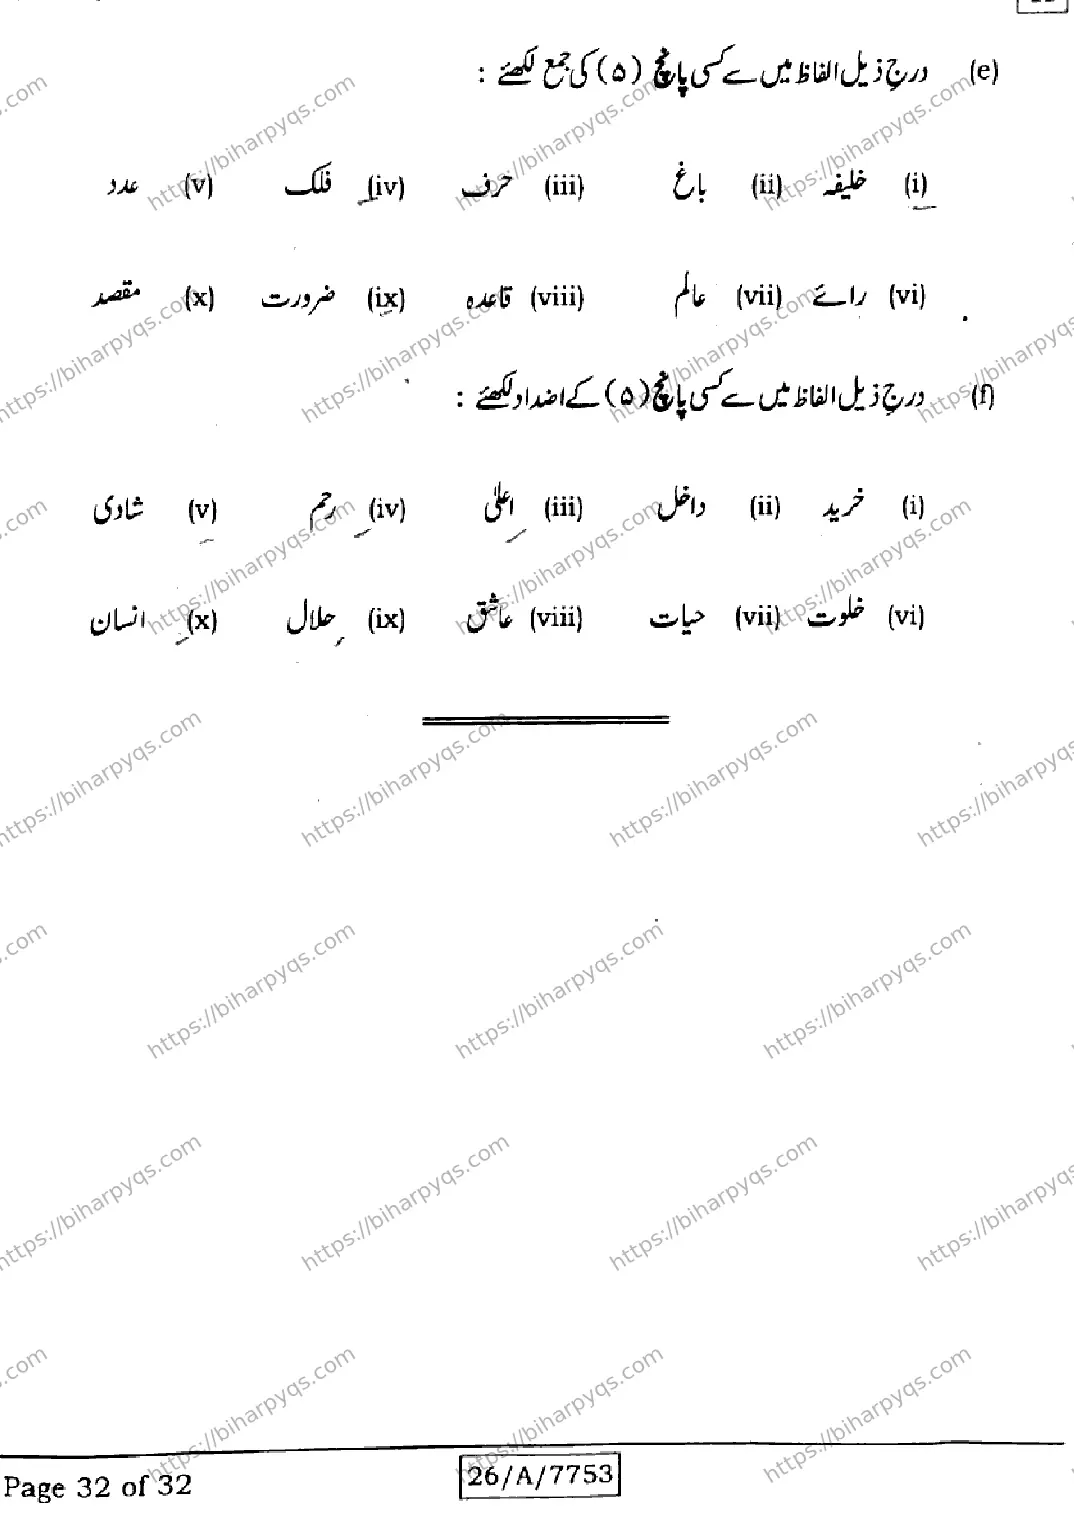 (e) درج ذیل الفاظ میں سے کسی پانچ (۵) کی جمع لکھئے :
(i) خلیفہ (ii) باغ (iii) حرف (iv) فلک (v) عدد
(vi) رائے (vii) عالم (viii) قاعدہ (ix) ضرورت (x) مقصد
(f) درج ذیل الفاظ میں سے کسی پانچ (۵) کے اضداد لکھئے :
(i) خرید (ii) داخل (iii) اعلیٰ (iv) رحم (v) شادی
(vi) خلوت (vii) حیات (viii) عاشق (ix) حلال (x) انسان
Page 32 of 32 26/A/7753
https://biharpyqs.com